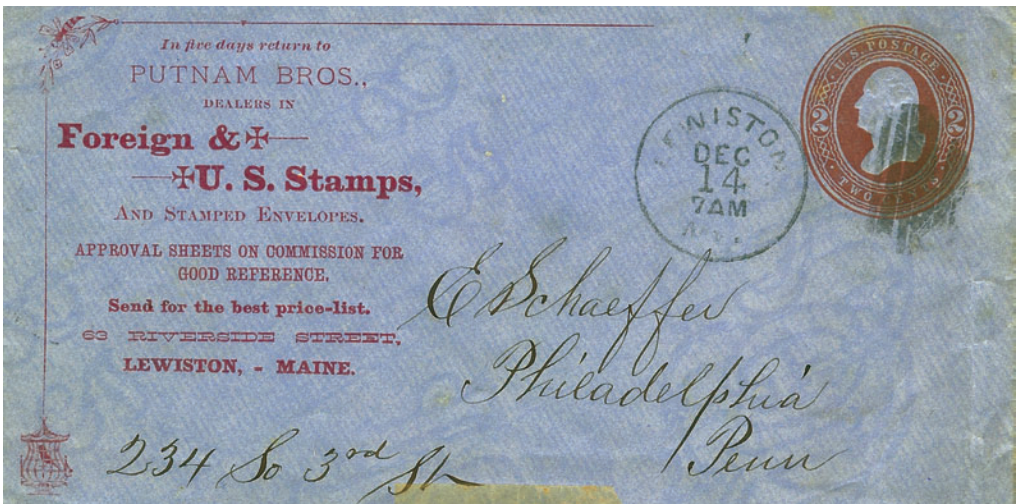 In five days return to
PUTNAM BROS.,
DEALERS IN
Foreign &
U. S. Stamps,
AND STAMPED ENVELOPES.
APPROVAL SHEETS ON COMMISSION FOR
GOOD REFERENCE.
Send for the best price-list.
63 RIVERSIDE STREET,
LEWISTON, - MAINE.
LEWISTON
DEC
14
7AM
U.S. POSTAGE
2 2
TWO CENTS
E Schaeffer
Philadelphia
Penn
234 So 3rd St